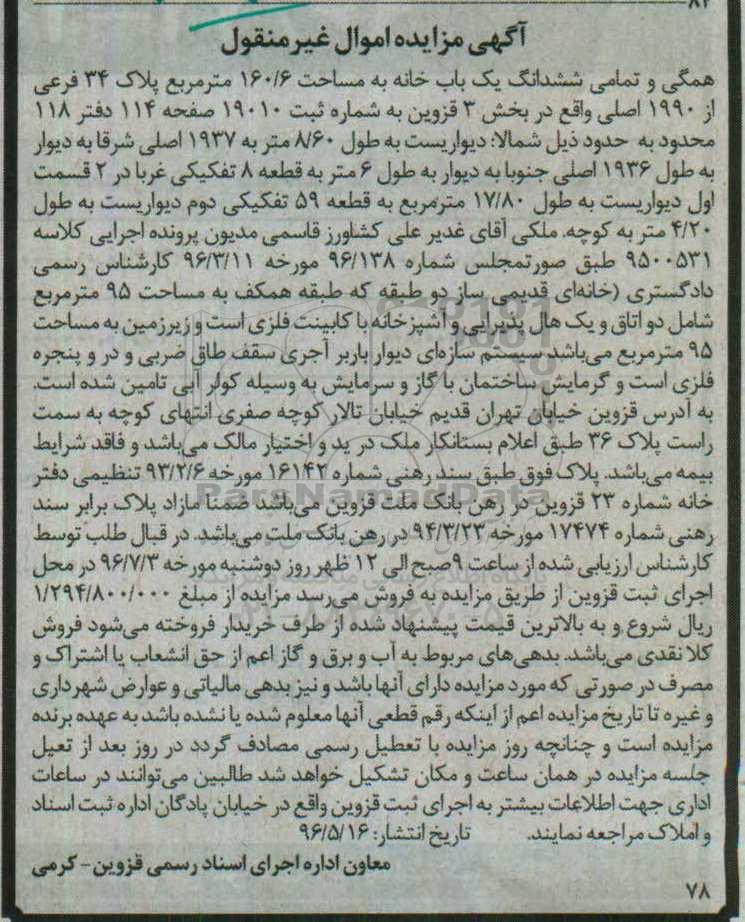 ۸۲
آگهی مزایده اموال غیرمنقول
همگی و تمامی ششدانگ یک باب خانه به مساحت ۱۶۰/۶ مترمربع پلاک ۳۴ فرعی
از ۱۹۹۰ اصلی واقع در بخش ۳ قزوین به شماره ثبت ۱۹۰۱۰ صفحه ۱۱۴ دفتر ۱۱۸
محدود به حدود ذیل شمالا: دیواریست به طول ۸/۶۰ متر به ۱۹۳۷ اصلی شرقا به دیوار
به طول ۱۹۳۶ اصلی جنوبا به دیوار به طول ۶ متر به قطعه ۸ تفکیکی غربا در ۲ قسمت
اول دیواریست به طول ۱۷/۸۰ مترمربع به قطعه ۵۹ تفکیکی دوم دیواریست به طول
۴/۲۰ متر به کوچه. ملکی آقای غدیر علی کشاورز قاسمی مدیون پرونده اجرایی کلاسه
۹۵۰۰۵۳۱ طبق صورتمجلس شماره ۹۶/۱۳۸ مورخه ۹۶/۳/۱۱ کارشناس رسمی
دادگستری (خانه‌ای قدیمی ساز دو طبقه که طبقه همکف به مساحت ۹۵ مترمربع
شامل دو اتاق و یک هال پذیرایی و آشپزخانه با کابینت فلزی است و زیرزمین به مساحت
۹۵ مترمربع می‌باشد سیستم سازه‌ای دیوار باربر آجری سقف طاق ضربی و در و پنجره
فلزی است و گرمایش ساختمان با گاز و سرمایش به وسیله کولر آبی تامین شده است.
به آدرس قزوین خیابان تهران قدیم خیابان تالار کوچه صفری انتهای کوچه به سمت
راست پلاک ۳۶ طبق اعلام بستانکار ملک در ید و اختیار مالک می‌باشد و فاقد شرایط
بیمه می‌باشد. پلاک فوق طبق سند رهنی شماره ۱۶۱۴۲ مورخه ۹۳/۲/۶ تنظیمی دفتر
خانه شماره ۲۳ قزوین در رهن بانک ملت قزوین می‌باشد ضمنا مازاد پلاک برابر سند
رهنی شماره ۱۷۴۷۴ مورخه ۹۴/۳/۲۳ در رهن بانک ملت می‌باشد. در قبال طلب توسط
کارشناس ارزیابی شده از ساعت ۹صبح الی ۱۲ ظهر روز دوشنبه مورخه ۹۶/۷/۳ در محل
اجرای ثبت قزوین از طریق مزایده به فروش می‌رسد مزایده از مبلغ ۱/۲۹۴/۸۰۰/۰۰۰
ریال شروع و به بالاترین قیمت پیشنهاد شده از طرف خریدار فروخته می‌شود فروش
کلا نقدی می‌باشد. بدهی‌های مربوط به آب و برق و گاز اعم از حق انشعاب یا اشتراک و
مصرف در صورتی که مورد مزایده دارای آنها باشد و نیز بدهی مالیاتی و عوارض شهرداری
و غیره تا تاریخ مزایده اعم از اینکه رقم قطعی آنها معلوم شده یا نشده باشد به عهده برنده
مزایده است و چنانچه روز مزایده با تعطیل رسمی مصادف گردد در روز بعد از تعیل
جلسه مزایده در همان ساعت و مکان تشکیل خواهد شد طالبین می‌توانند در ساعات
اداری جهت اطلاعات بیشتر به اجرای ثبت قزوین واقع در خیابان پادگان اداره ثبت اسناد
و املاک مراجعه نمایند. تاریخ انتشار: ۹۶/۵/۱۶
معاون اداره اجرای اسناد رسمی قزوین- کرمی
۷۸
ParsNamadData